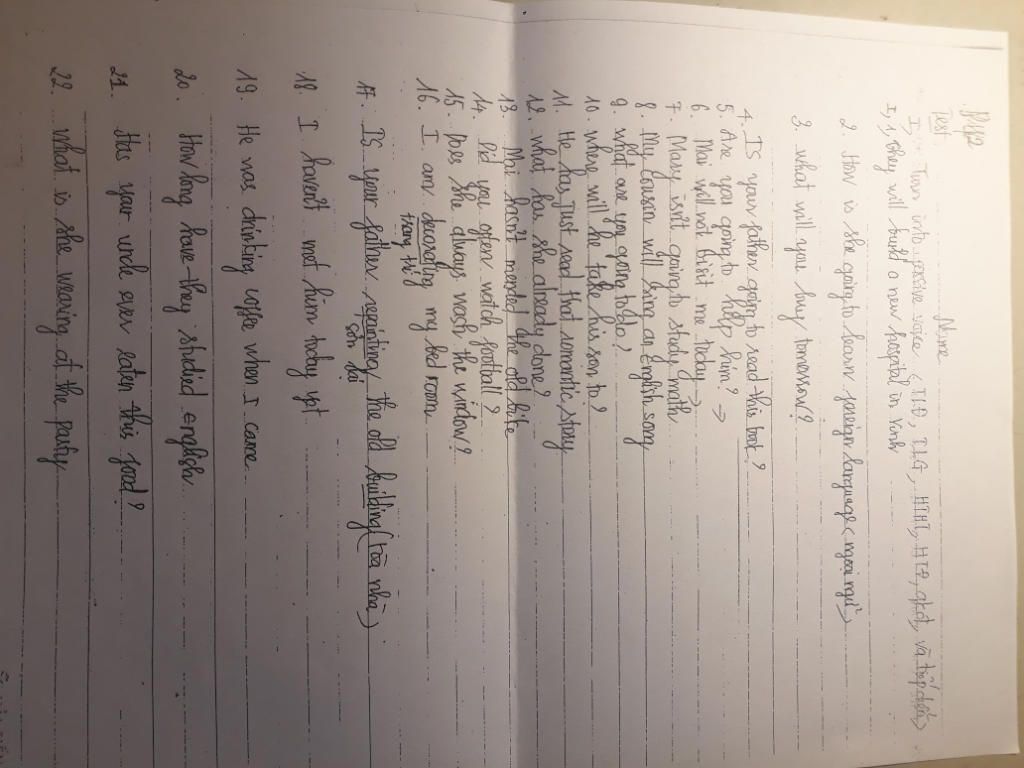 Name
Test
I, Turn into passive voice ( TLĐ, TLG, HTHT, HTĐ, qkđ,
I, 1, They will build a new hospital in Vinh
2. How is she going to learn foreign language ( ngoại ngữ )
3. what will you buy tomorrow?
4. Is your father going to read this book?
5. Are you going to help him? ⇒
6. Mai will not visit me today →
7. Mary isn't going to study math
8. My cousin will sing an English song
9. what are you going to do?
10. where will he take his son to?
11. He has just read that romantic story
12. what has she already done?
13. Mai hasn't mended the old bike
14. Did you often watch football?
15. Does she always wash the window?
16. I am decorating my bed room
trang trí
17. Is your father repainting the old building ( tòa nhà )
sơn lại
18. I haven't met him today yet
19. He was drinking coffee when I came
20. How long have they studied english
21. Has your uncle ever eaten this food?
22. What is she wearing at the party